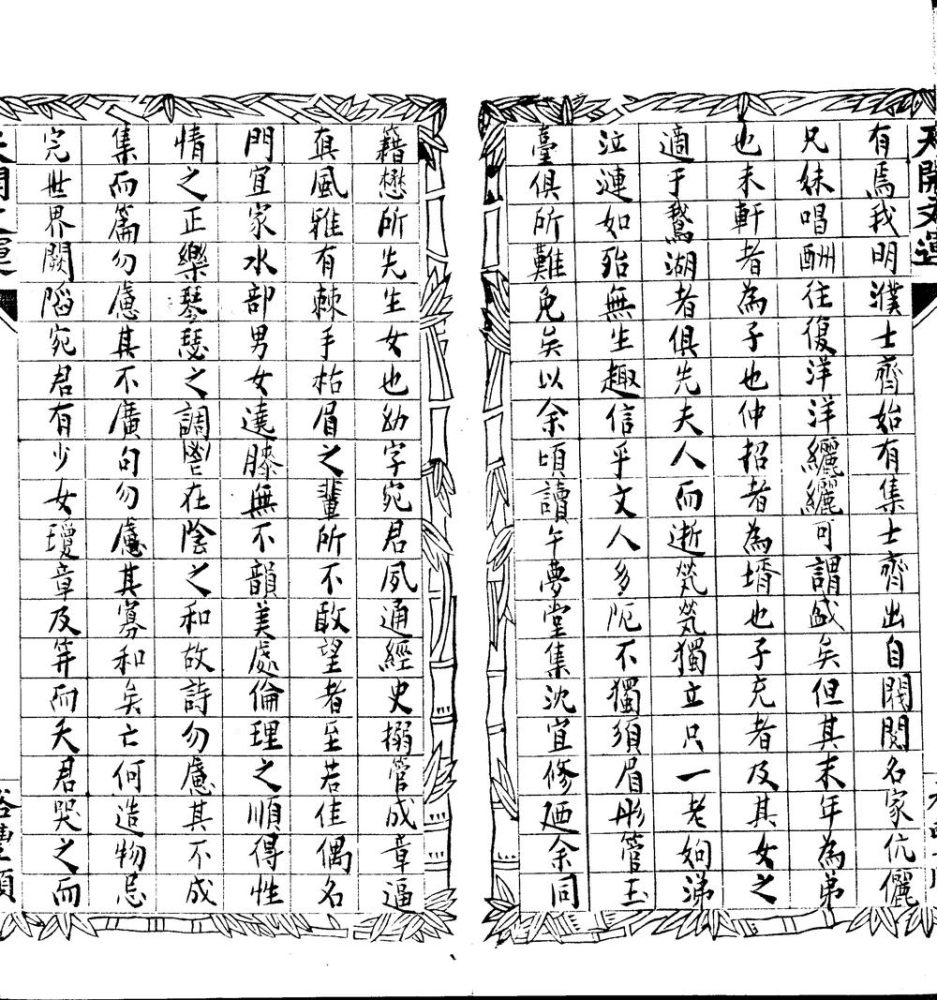 天開文運
有焉我明濮士齊始有集士齊出自閥閱名家伉儷
兄妹唱酬往復洋洋纚纚可謂盛矣但其末年為弟
也未軒者為子也仲招者為壻也子充者及其女之
適于鵞湖者俱先夫人而逝煢煢獨立只一老姁涕
泣漣如殆無生趣信乎文人多阨不獨須眉彤管玉
臺俱所難免矣以余頃讀午夢堂集沈宜修廼余同
籍懋所先生女也幼字宛君夙通經史搦管成章逼
真風雅有棘手枯眉之輩所不敢望者至若佳偶名
門宜家水部男女遶膝無不韻美處倫理之順得性
情之正樂琴瑟之調鬯在陰之和故詩勿慮其不成
集而篇勿慮其不廣句勿慮其寡和矣亡何造物忌
完世界闕陷宛君有少女瓊章及笄而夭君哭之而